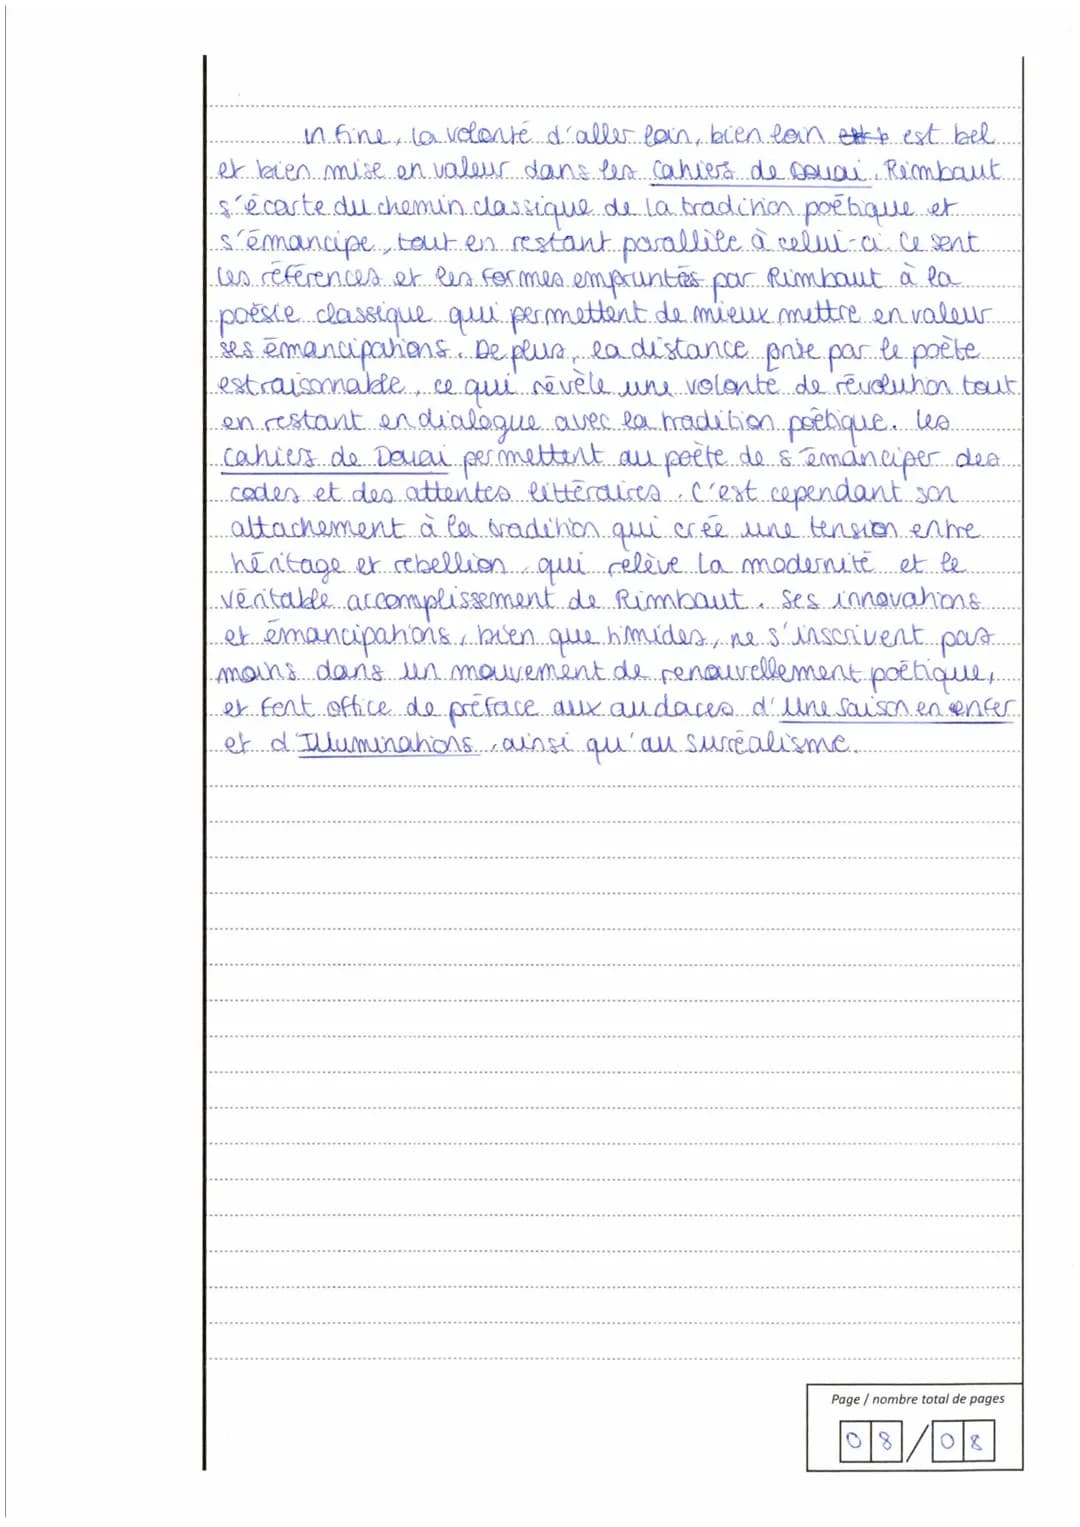 in fine, la volonté d'aller loin, bien loin est bel
et bien mise en valeur dans les Cahiers de Douai. Rimbaut
s'écarte du chemin classique de la tradition poétique et
s'émancipe, tout en restant parallile à celui-ci. Ce sont
les références et les formes empruntés par Rimbaut à la
poésie classique qui permettent de mieux mettre en valeur
ses émancipations. De plus, la distance prise par le poète
est raisonnable, ce qui révèle une volonté de révolution tout
en restant en dialogue avec la tradition poétique. Les
Cahiers de Douai permettent au poète de s'émanciper des
codes et des attentes littéraires. C'est cependant son
attachement à la tradition qui crée une tension entre
héritage et rebellion qui relève la modernité et le
véritable accomplissement de Rimbaut. Ses innovations
et émancipations, bien que timides, ne s'inscrivent pas
moins dans un mouvement de renouvellement poétique,
et font office de préface aux audaces d'Une Saison en enfer
et d'Illuminations, ainsi qu'au surréalisme.
Page / nombre total de pages
08/08